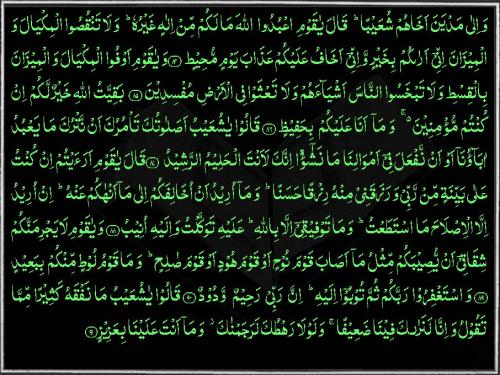 وَاِلٰى مَدْيَنَ اَخَاهُمْ شُعَيْبًا ؕ قَالَ يٰقَوْمِ اعْبُدُوا اللّٰهَ مَا لَكُمْ مِّنْ اِلٰهٍ غَيْرُهٗ ؕ وَلَا تَنْقُصُوا الْمِكْيَالَ وَ
الْمِيْزَانَ اِنِّيْۤ اَرٰىكُمْ بِخَيْرٍ وَّاِنِّيْۤ اَخَافُ عَلَيْكُمْ عَذَابَ يَوْمٍ مُّحِيْطٍ ﴿۸۴﴾ وَيٰقَوْمِ اَوْفُوا الْمِكْيَالَ وَالْمِيْزَانَ
بِالْقِسْطِ وَلَا تَبْخَسُوا النَّاسَ اَشْيَآءَهُمْ وَلَا تَعْثَوْا فِى الْاَرْضِ مُفْسِدِيْنَ ﴿۸۵﴾ بَقِيَّتُ اللّٰهِ خَيْرٌ لَّكُمْ اِنْ
كُنْتُمْ مُّؤْمِنِيْنَ ۚ وَمَاۤ اَنَا عَلَيْكُمْ بِحَفِيْظٍ ﴿۸۶﴾ قَالُوْا يٰشُعَيْبُ اَصَلٰوتُكَ تَاْمُرُكَ اَنْ نَّتْرُكَ مَا يَعْبُدُ
اٰبَآؤُنَاۤ اَوْ اَنْ نَّفْعَلَ فِيْۤ اَمْوَالِنَا مَا نَشٰٓؤُا ؕ اِنَّكَ لَاَنْتَ الْحَلِيْمُ الرَّشِيْدُ ﴿۸۷﴾ قَالَ يٰقَوْمِ اَرَءَيْتُمْ اِنْ كُنْتُ
عَلٰى بَيِّنَةٍ مِّنْ رَّبِّيْ وَرَزَقَنِيْ مِنْهُ رِزْقًا حَسَنًا ؕ وَمَاۤ اُرِيْدُ اَنْ اُخَالِفَكُمْ اِلٰى مَاۤ اَنْهٰىكُمْ عَنْهُ ؕ اِنْ اُرِيْدُ
اِلَّا الْاِصْلَاحَ مَا اسْتَطَعْتُ ؕ وَمَا تَوْفِيْقِيْۤ اِلَّا بِاللّٰهِ ؕ عَلَيْهِ تَوَكَّلْتُ وَاِلَيْهِ اُنِيْبُ ﴿۸۸﴾ وَيٰقَوْمِ لَا يَجْرِمَنَّكُمْ
شِقَاقِيْۤ اَنْ يُّصِيْبَكُمْ مِّثْلُ مَاۤ اَصَابَ قَوْمَ نُوْحٍ اَوْ قَوْمَ هُوْدٍ اَوْ قَوْمَ صٰلِحٍ ؕ وَمَا قَوْمُ لُوْطٍ مِّنْكُمْ بِبَعِيْدٍ
﴿۸۹﴾ وَاسْتَغْفِرُوْا رَبَّكُمْ ثُمَّ تُوْبُوْۤا اِلَيْهِ ؕ اِنَّ رَبِّيْ رَحِيْمٌ وَّدُوْدٌ ﴿۹۰﴾ قَالُوْا يٰشُعَيْبُ مَا نَفْقَهُ كَثِيْرًا مِّمَّا
تَقُوْلُ وَاِنَّا لَنَرٰىكَ فِيْنَا ضَعِيْفًا ۚ وَلَوْلَا رَهْطُكَ لَرَجَمْنٰكَ ؗ وَمَاۤ اَنْتَ عَلَيْنَا بِعَزِيْزٍ ﴿۹۱﴾